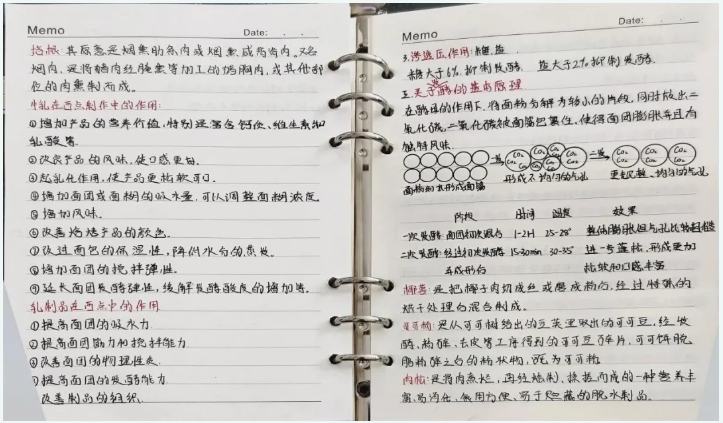 Memo
Date:
培根:其原意是烟熏肋条肉或烟熏咸背脊肉。又名
烟肉,是将猪肉经腌熏等加工的猪胸肉,或其他部
位的肉熏制而成。
牛乳在西点制作中的作用:
①增加产品的营养价值,特别是富含钙质、维生素和
乳酸等.
②改良产品的风味,使口感更好.
③起乳化作用,使产品更松软可口.
④增加面团或面糊的吸水量,可以调整面糊浓度
⑤增加风味.
⑥改善烘烤产品的颜色.
⑦改进面包的保湿性,降低水分的蒸发.
⑧增加面团的搅拌弹性.
⑨延长面团发酵弹性,缓解发酵酸度的增加等.
乳制品在西点中的作用
①提高面团的吸水力
②提高面团筋力和搅拌能力
③改善面团的物理性质
提高面团的发酵能力
改善制品的组织.
Memo
Date:
3.渗透压作用:糖、盐
糖大于6%抑制发酵. 盐大于2%抑制发酵.
五.关于酵的基本原理
在酵母的作用下,将面粉分解为较小的片段,同时放出二
氧化碳,二氧化碳被面筋包裹住,使得面团膨胀并且有
独特风味.
CO₂ CO₂ CO₂ CO₂
面粉和水形成面筋 形成不均匀的气孔 更细腻、均匀的气孔
阶段 时间 温度 效果
一次发酵:面团初次混合 1-2H 25-28° 整体膨胀但气孔比较粗糙
二次发酵:经过初次发酵 15-30min 30-35° 进一步蓬松,形成更加
车成形的 松软和口感丰富
椰蓉:是把椰子肉切成丝或磨成粉后,经过特殊的
烘干处理后混合制成。
可可粉:是从可可树结出的豆荚里取出的可可豆,经发
酵、粉碎、去皮等工序得到的可可豆碎片,可可饼脱
脂粉碎之后的粉状物,既为可可粉
肉松:是将肉煮烂,再经炒制、揉搓而成的一种营养丰
富、易消化、食用方便、易于贮藏的脱水制品.